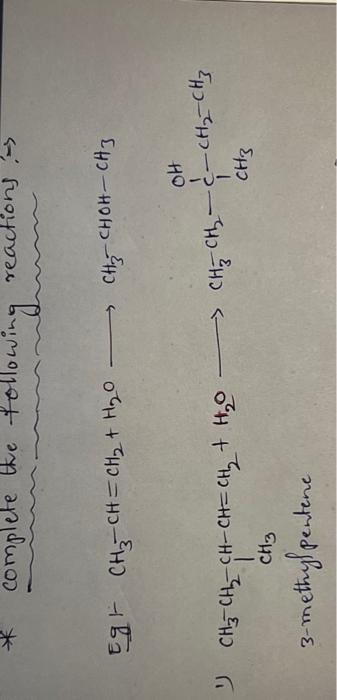 * complete the following reactions :→
Eg 1- CH₃-CH=CH₂ + H₂O ⟶ CH₃-CHOH-CH₃
OH
1) CH₃-CH₂-CH-CH=CH₂ + H₂O ⟶ CH₃-CH₂-C-CH₂-CH₃
CH₃ CH₃
3-methylpentene